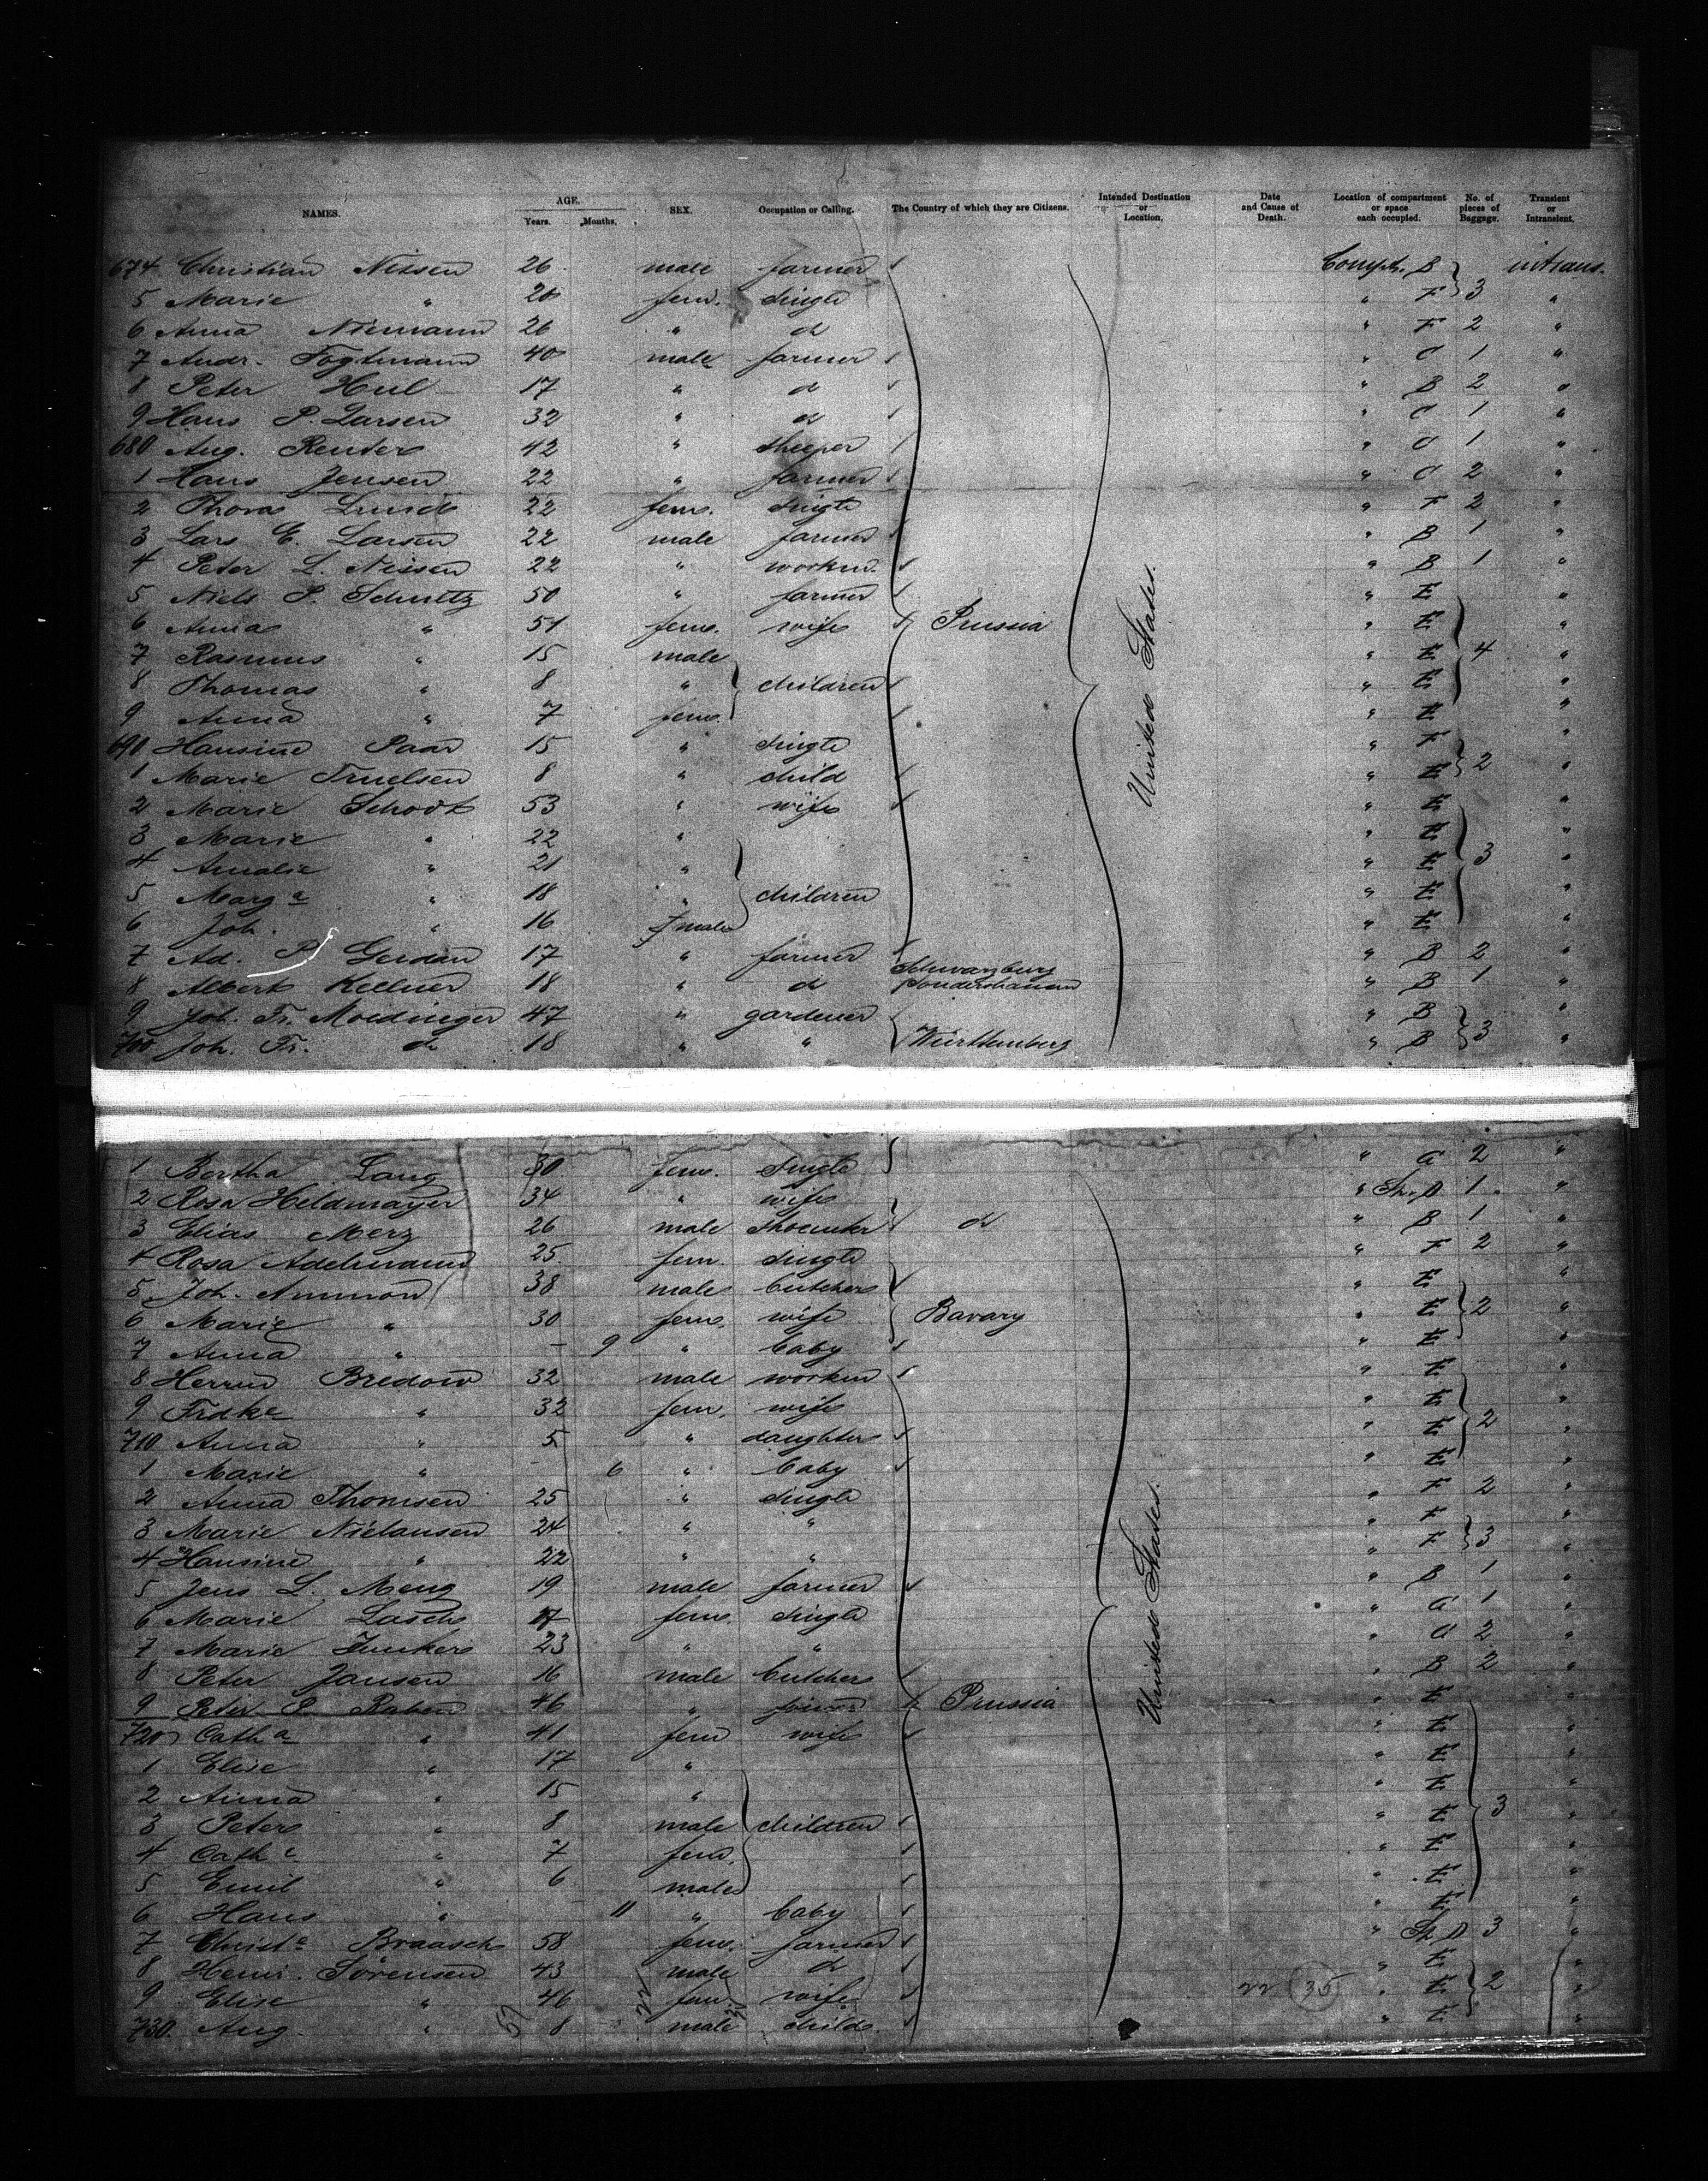 NAMES. AGE. Years. Months. SEX. Occupation or Calling. The Country of which they are Citizens. Intended Destination or Location. Date and Cause of Death. Location of compartment or space each occupied. No. of pieces of Baggage. Transient or Intransient.
674 Christian Nissen 26 male farmer Compt. B intrans.
5 Marie " 20 fem. single " F 3 "
6 Anna Niemann 26 " d " F 2 "
7 Andr. Fogtmann 40 male farmer " C 1 "
8 Peter 17 " d " B 2 "
9 Hans P. Larsen 32 " d " C 1 "
680 Aug. Renter 42 " " C 1 "
1 Hans Jensen 22 " farmer " C 2 "
2 Thora Lund 22 fem. single " F 2 "
3 Lars C. Larsen 22 male farmer " B 1 "
4 Peter L. Nissen 22 " workm. " B 1 "
5 Niels P. Schultz 50 " farmer " E "
6 Anna " 51 fem. wife Prussia United States. " E "
7 Rasmus " 15 male " E 4 "
8 Thomas " 8 " children " E "
9 Anna " 7 fem. " E "
690 Hansine Paar 15 " single " F "
1 Marie Truelsen 8 " child " E 2 "
2 Marie Schodt 53 " wife " E "
3 Marie " 22 " " E "
4 Amalie " 21 " " E 3 "
5 Marg a " 18 " children " E "
6 Joh. " 16 male " E "
7 Ad. P. 17 " farmer " B 2 "
8 Albert Kellner 18 " d Schwarzburg Sondershausen " B 1 "
9 Joh. Fr. Moedinger 47 " gardener " B "
700 Joh. Fr. d 18 " " Württemberg " B 3 "
1 Bertha Lang 30 fem. single " C 2 "
2 Rosa Heldmayer 34 " wife " St. D 1 "
3 Elias Merz 26 male shoemker d " B 1 "
4 Rosa Adelmann 25 fem. single " F 2 "
5 Joh. Ammon 38 male butcher " E "
6 Marie " 30 fem. wife Bavary " E 2 "
7 Anna " – 9 " baby " E "
8 Herrm Bredow 32 male workm " E "
9 Frdke " 32 fem. wife " E "
710 Anna " 5 " daughter " E 2 "
1 Marie " – 6 " baby " E "
2 Anna Thomsen 25 " single " F 2 "
3 Marie Nielansen 24 " " " F "
4 Hansine " 22 " " " F 3 "
5 Jens L. Meng 19 male farmer " B 1 "
6 Marie Lasch 17 fem. single " C 1 "
7 Marie Junker 23 " " " C 2 "
8 Peter Jansen 16 male butcher United States. " B 2 "
9 Peter P. Raben 46 " Prussia " E "
720 Cath a " 41 fem wife " E "
1 Elise " 17 " " E "
2 Anna " 15 " " E "
3 Peter " 8 male children " E 3 "
4 Cath e " 7 fem. " E "
5 Emil " 6 male " E "
6 Hans " – 11 " baby " E "
7 Christe Braasch 58 fem. farmer " St. D 3 "
8 Henr. Sörensen 43 male d " E "
9 Elise " 46 fem. wife 22 35 " E 2 "
730. Aug. " 8 male child. " E "